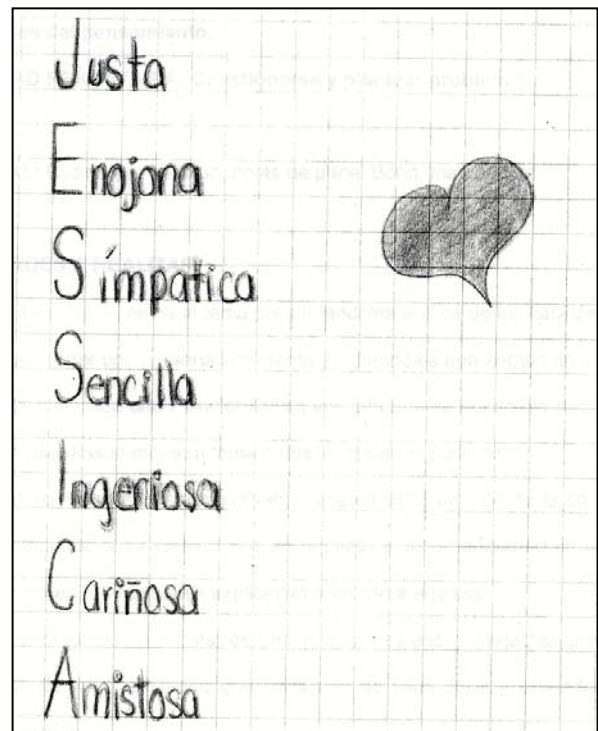 Justa
Enojona
Simpatica
Sencilla
Ingeniosa
Cariñosa
Amistosa